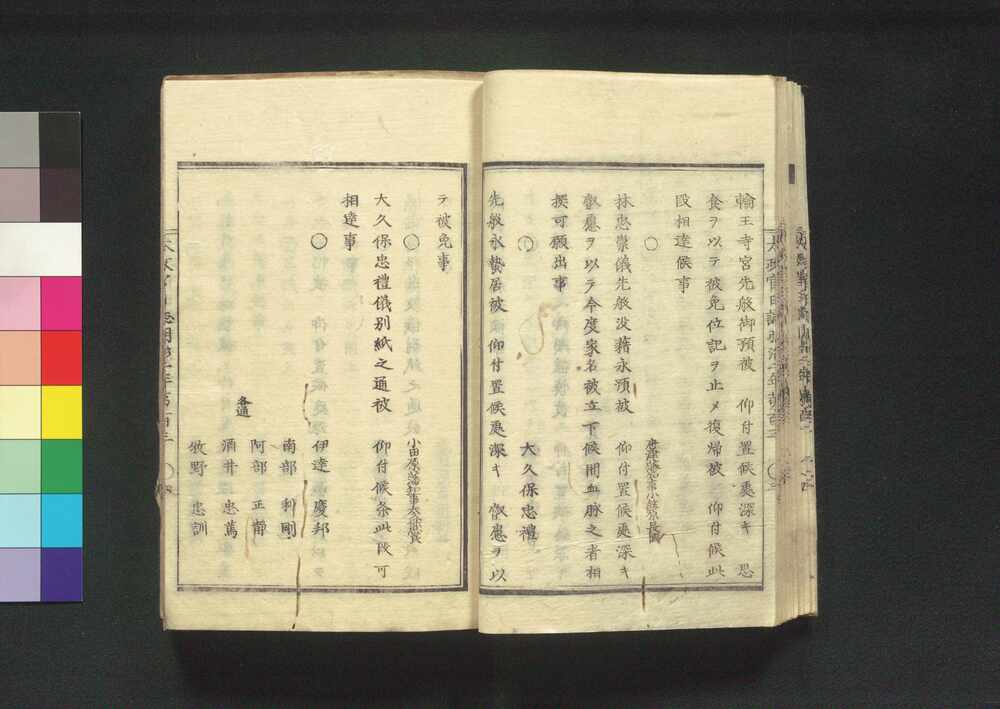 輪王寺宮先般御預被　仰付置候處深キ　思
食ヲ以テ被免位記ヲ止メ復帰被　仰付候此
段相達候事
○
林忠崇儀先般没藉永預被　仰付置候處深キ
叡慮ヲ以テ今度家名被立下候間血脉之者相
撰可願出事
○　大久保忠禮
先般永蟄居被　仰付置候處深キ　叡慮ヲ以
テ被免事
○
大久保忠禮儀別紙之通被　仰付候条此段可
相達事
○　伊達慶邦
南部　利剛
各通　阿部　正
酒井　忠篤
牧野　忠訓